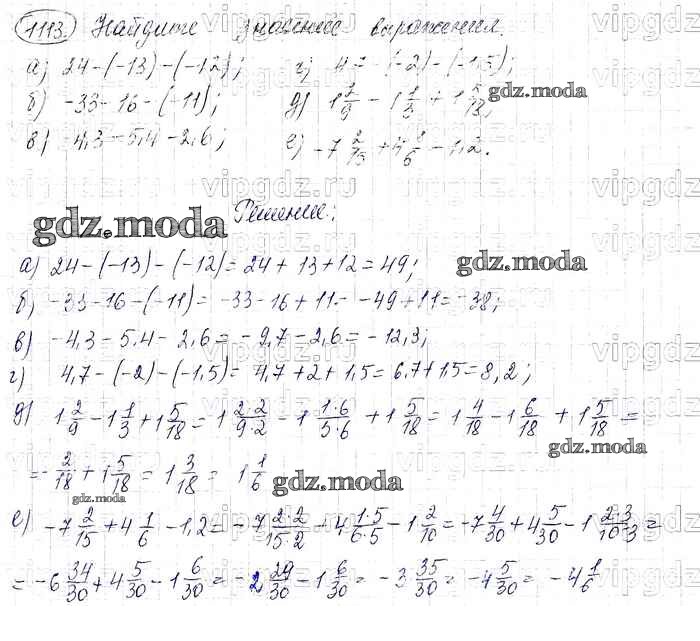 1113. Найдите значение выражения.
а) 24-(-13)-(-12); г) 4 - (-2)-(-1,5);
б) -33-16-(-11); д) 1 2/9 - 1 1/3 + 1 5/18;
в) -4,3-5,4-2,6; е) -7 2/15 + 4 1/6 - 1,2.
gdz.moda
Решение:
gdz.moda
а) 24-(-13)-(-12)=24+13+12=49;
gdz.moda
б) -33-16-(-11)= -33-16+11= -49+11=-38;
в) -4,3-5,4-2,6= -9,7-2,6= -12,3;
г) 4,7-(-2)-(-1,5)= 4,7+2+1,5=6,7+1,5=8,2;
д) 1 2/9 - 1 1/3 + 1 5/18 = 1 2·2/9·2 - 1 1·6/3·6 + 1 5/18 = 1 4/18 - 1 6/18 + 1 5/18 =
gdz.moda
= -2/18 + 1 5/18 = 1 3/18 = 1 1/6
gdz.moda
gdz.moda
е) -7 2/15 + 4 1/6 - 1,2 = -7 2·2/15·2 + 4 1·5/6·5 - 1 2/10 = -7 4/30 + 4 5/30 - 1 2·3/10·3 =
= -6 34/30 + 4 5/30 - 1 6/30 = -2 29/30 - 1 6/30 = -3 35/30 = -4 5/30 = -4 1/6
vipgdz.ru